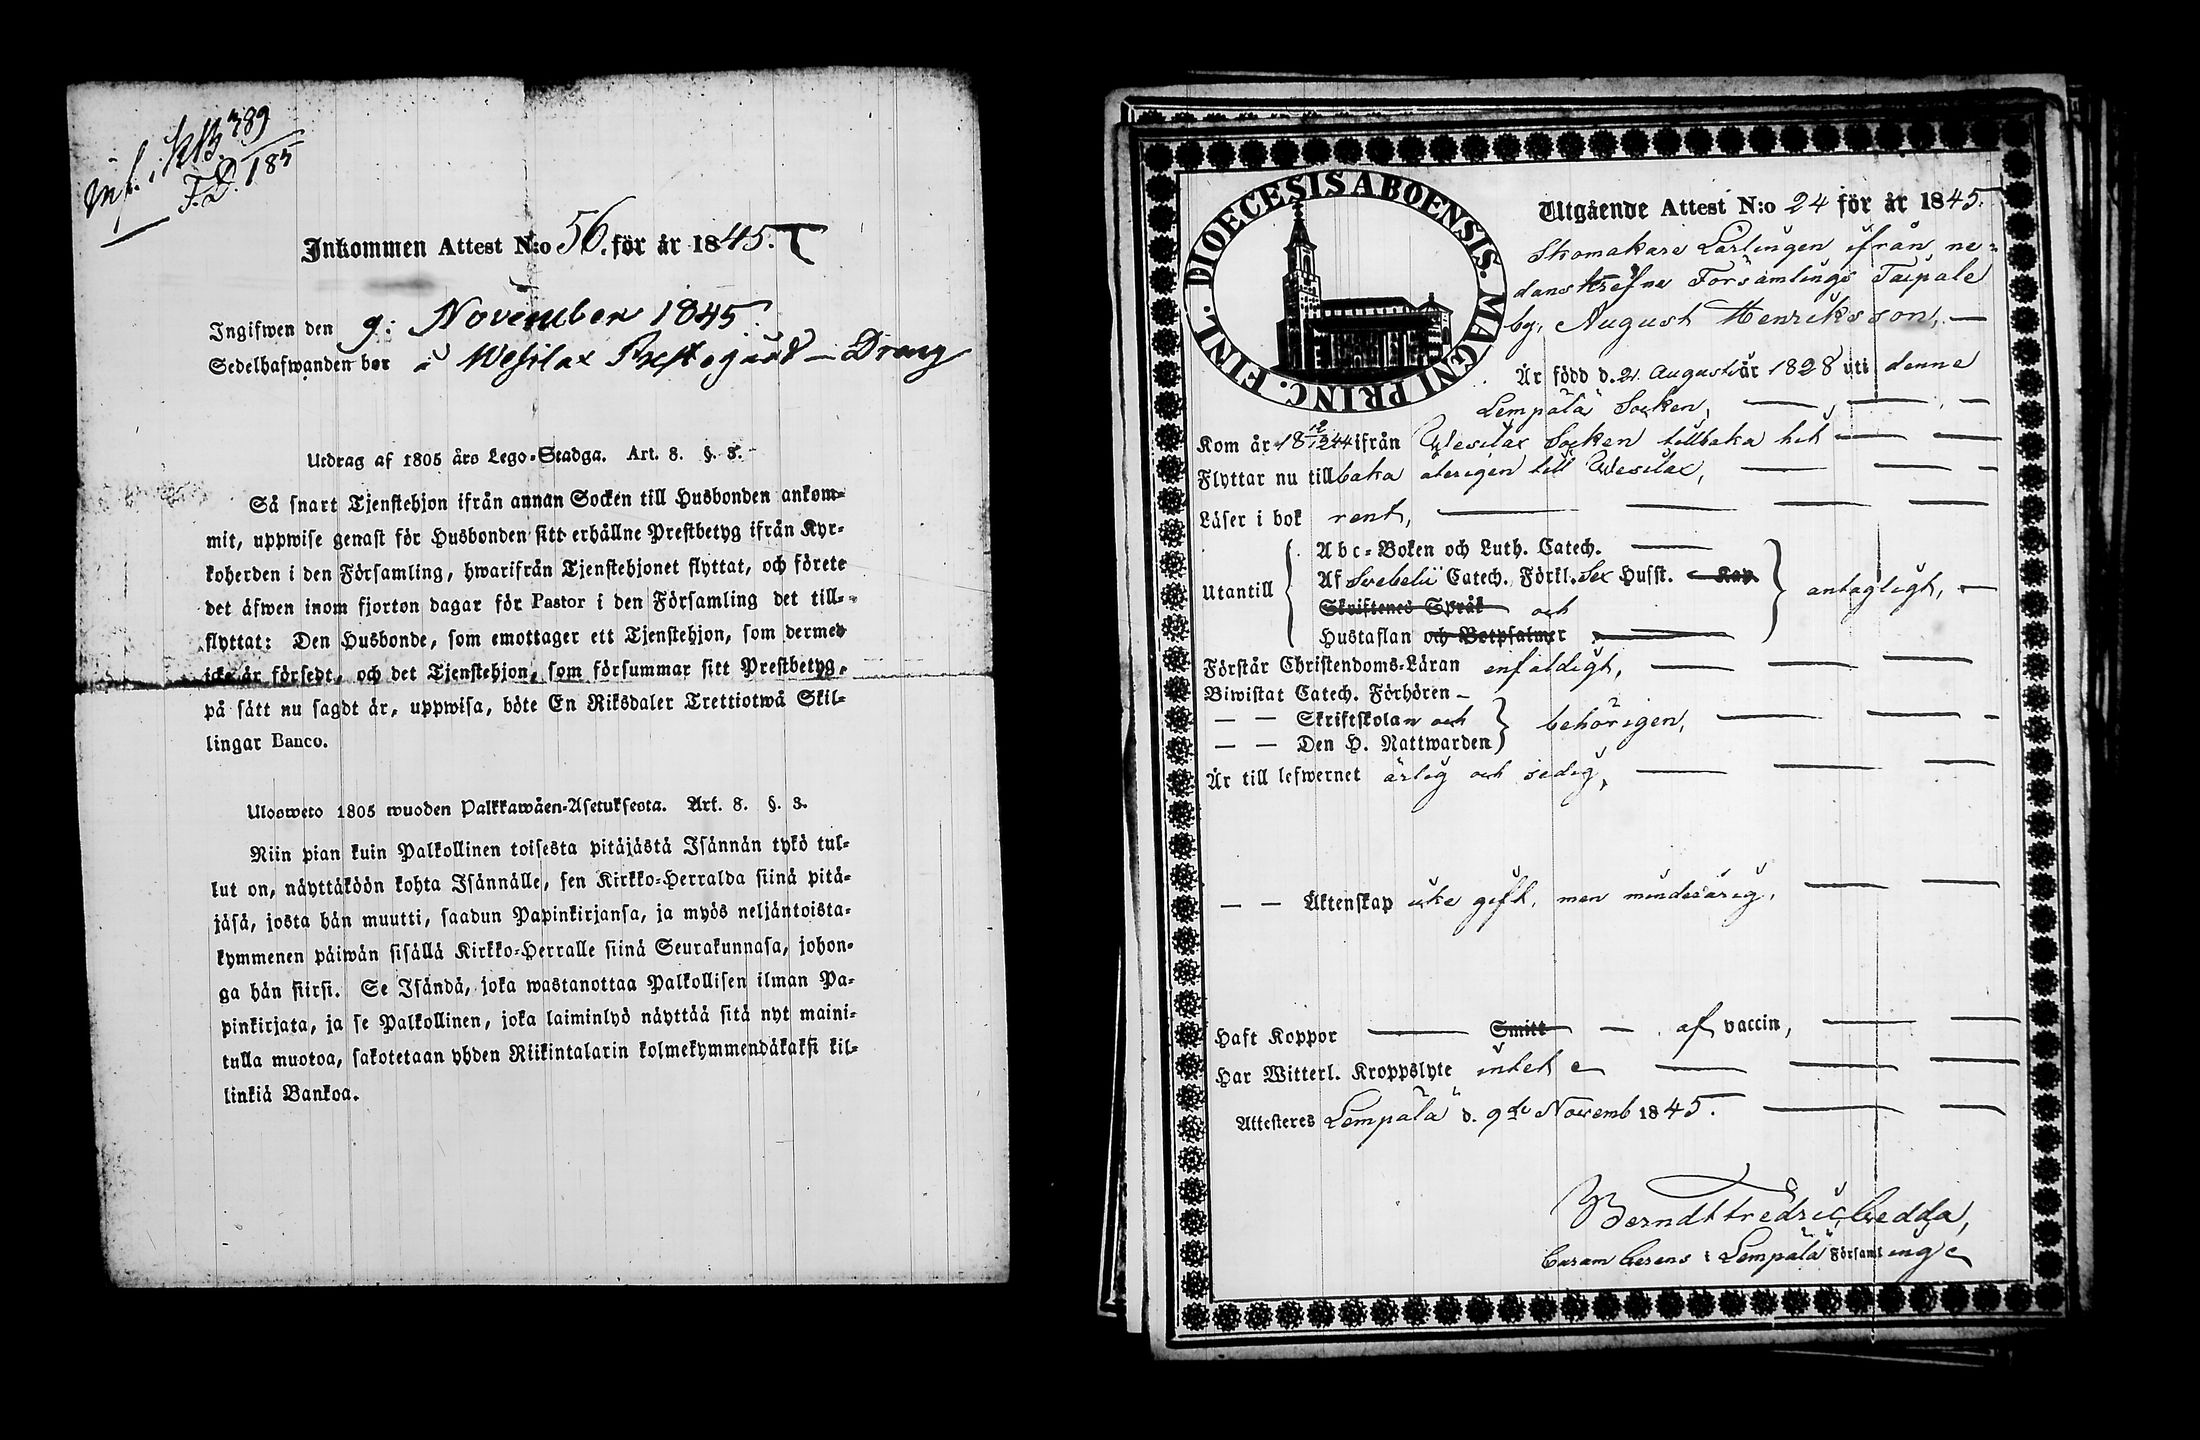 inf. i KB. 389
F.D. 185
Inkommen Attest N:o 56. för år 1845.
Ingifwen den 9: November 1845
Sedelhafwanden bor i Wesilax Prestegård – Dräng
Utdrag af 1805 års Lego-Stadga. Art. 8. §. 3.
Så snart Tjenstehjon ifrån annan Socken till Husbonden ankom-
mit, uppwise genast för Husbonden sitt erhållne Prestbetyg ifrån Kyr-
koherden i den Församling, hwarifrån Tjenstehjonet flyttat, och förete
det äfwen inom fjorton dagar för Pastor i den Församling det till-
flyttat: Den Husbonde, som emottager ett Tjenstehjon, som dermed
icke är försedt, och det Tjenstehjon, som försummar sitt Prestbetyg,
på sätt nu sagdt är, uppwisa, böte En Riksdaler Trettiotwå Skil-
lingar Banco.
Ulosweto 1805 wuoden Palkkawäen-Asetuksesta. Art. 8. §. 3.
Niin pian kuin Palkollinen toisesta pitäjästä Isännän tykö tul-
lut on, näyttäköön kohta Isännälle, sen Kirkko-Herralda siinä pitä-
jäsä, josta hän muutti, saadun Papinkirjansa, ja myös neljäntoista-
kymmenen päiwän sisällä Kirkko-Herralle siinä Seurakunnasa, johon-
ga hän siirsi. Se Isändä, joka wastanottaa Palkollisen ilman Pa-
pinkirjata, ja se Palkollinen, joka laiminlyö näyttää sitä nyt maini-
tulla muotoa, sakotetaan yhden Riikintalarin kolmekymmendäkaksi kil-
linkiä Bankoa.
DIOECESIS ABOENSIS. MAGNI PRINC. FINL.
Utgående Attest N:o 24 för år 1845.
Skomakare Lärlingen ifrån ne-
danskrefne Församlings Taipale
by, August Henriksson, —
Är född d. 21 Augusti år 1828 uti denne
Lempälä Socken, — — —
Kom år 18 12/12 44 ifrån Wesilax Socken tillbaka hit — —
Flyttar nu tillbaka återigen till Wesilax, — — —
Läser i bok rent, — — — —
Utantill
Abc-Boken och Luth. Catech. —
Af Svebelii Catech. Förkl. Sex Husst. Kap.
Skriftenes Språk och
Hustaflan och Botpsalmer
antagligt, —
Förstår Christendoms-Läran enfaldigt, — — —
Biwistat Catech. Förhören –
— — Skriftskolan och
— — Den H. Nattwarden
behörigen, — — —
Är till lefwernet ärlig och sedig, — — —
— — Äktenskap icke gift, men minderårig, — —
Haft Koppor — Smitt — af vaccin, — —
Har Witterl. Kroppslyte intet — — —
Attesteres Lempälä d. 9de Novemb 1845. — —
Berndt Fredric Gedda,
Curam Gerens i Lempälä Församling